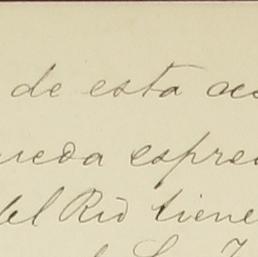 de esta ac
ueda espre
del Rio tiene